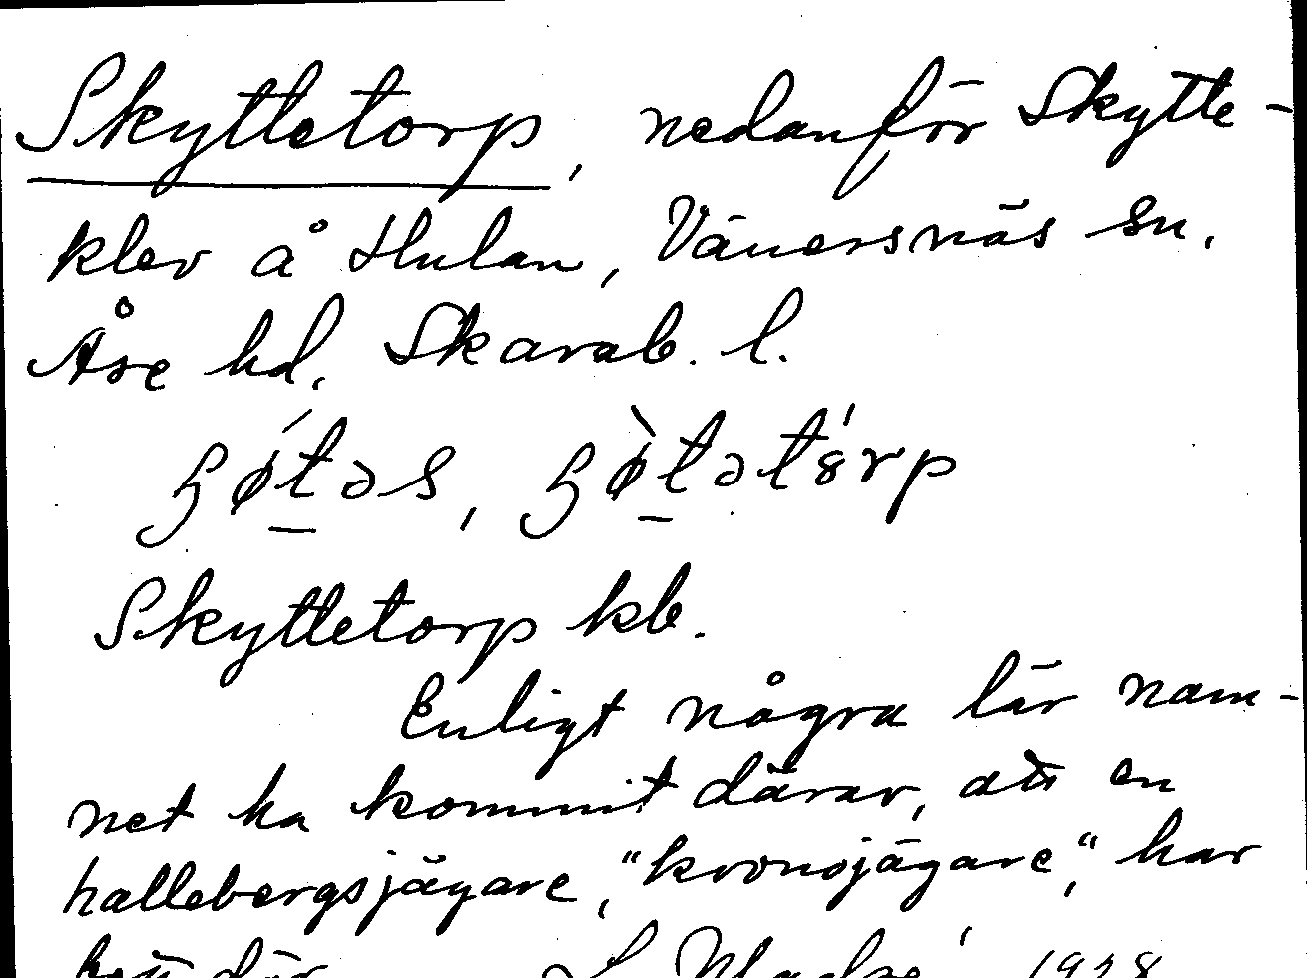 Skyttetorp, nedanför Skytte-
klev å Hulan, Vänersnäs sn.
Åse hd. Skarab. l.
Skyttetorp kb.
Enligt några lär nam-
net ha kommit därav, att en
hallebergsjägare, "kronojägare", har
1928